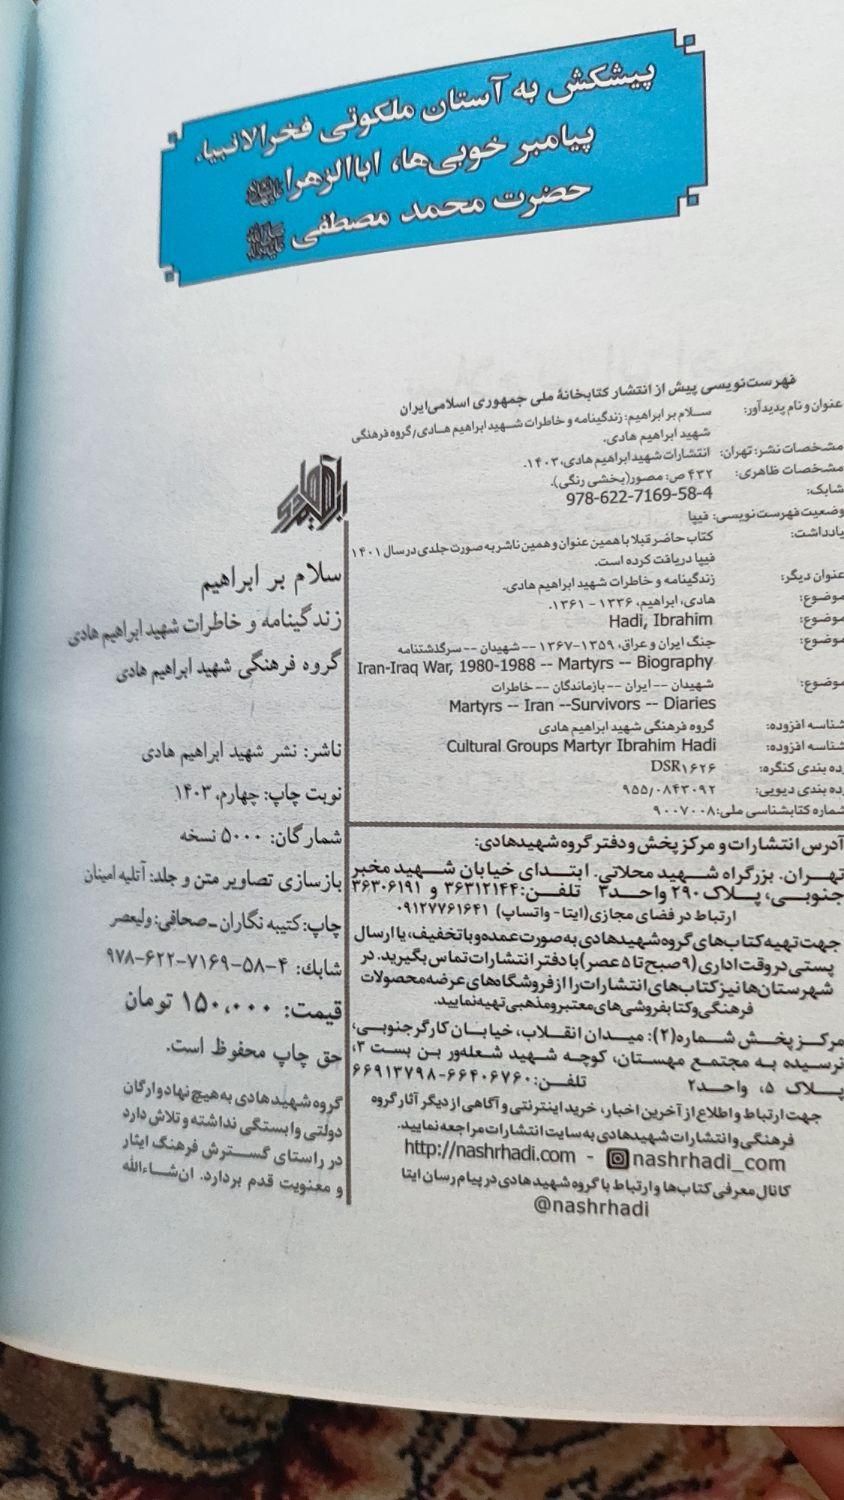 پیشکش به آستان ملکوتی فخرالانبیاء،
پیامبر خوبی‌ها، اباالزهرا
حضرت محمد مصطفی ﷺ
فهرست‌نویسی پیش از انتشار کتابخانهٔ ملی جمهوری اسلامی ایران
عنوان و نام پدیدآور: سلام بر ابراهیم: زندگینامه و خاطرات شهید ابراهیم هادی/گروه فرهنگی
شهید ابراهیم هادی.
مشخصات نشر: تهران: انتشارات شهید ابراهیم هادی، ۱۴۰۳.
مشخصات ظاهری: ۴۳۲ ص: مصور(بخشی رنگی).
شابک: 978-622-7169-58-4
وضعیت فهرست‌نویسی: فیپا
یادداشت: کتاب حاضر قبلا با همین عنوان و همین ناشر به صورت جلدی در سال ۱۴۰۱
فیپا دریافت کرده است.
عنوان دیگر: زندگینامه و خاطرات شهید ابراهیم هادی.
موضوع: هادی، ابراهیم، ۱۳۳۶ - ۱۳۶۱.
موضوع: Hadi, Ibrahim
موضوع: جنگ ایران و عراق، ۱۳۵۹-۱۳۶۷ -- شهیدان -- سرگذشتنامه
Iran-Iraq War, 1980-1988 -- Martyrs -- Biography
موضوع: شهیدان -- ایران -- بازماندگان -- خاطرات
Martyrs -- Iran --Survivors -- Diaries
شناسه افزوده: گروه فرهنگی شهید ابراهیم هادی
شناسه افزوده: Cultural Groups Martyr Ibrahim Hadi
رده بندی کنگره: DSR۱۶۲۶
رده بندی دیویی: ۹۵۵/۰۸۴۳۰۹۲
شماره کتابشناسی ملی: ۹۰۰۷۰۰۸
آدرس انتشارات و مرکز پخش و دفتر گروه شهید هادی:
تهران. بزرگراه شهید محلاتی. ابتدای خیابان شهید مخبر
جنوبی، پلاک ۲۹۰ واحد۳ تلفن: ۳۶۳۱۲۱۴۴ و ۳۶۳۰۶۱۹۱
ارتباط در فضای مجازی(ایتا- واتساپ) ۰۹۱۲۷۷۶۱۶۴۱
جهت تهیه کتاب‌های گروه شهید هادی به صورت عمده و با تخفیف، یا ارسال
پستی در وقت اداری (۹ صبح تا ۵ عصر) با دفتر انتشارات تماس بگیرید. در
شهرستان‌ها نیز کتاب‌های انتشارات را از فروشگاه‌های عرضه محصولات
فرهنگی و کتابفروشی‌های معتبر و مذهبی تهیه نمایید.
مرکز پخش شماره(۲): میدان انقلاب، خیابان کارگر جنوبی،
نرسیده به مجتمع مهستان، کوچه شهید شعله‌ور بن بست ۳،
پلاک ۵، واحد۲ تلفن: ۶۶۴۰۶۷۶۰-۶۶۹۱۳۷۹۸
جهت ارتباط و اطلاع از آخرین اخبار، خرید اینترنتی و آگاهی از دیگر آثار گروه
فرهنگی و انتشارات شهید هادی به سایت انتشارات مراجعه نمایید.
http://nashrhadi.com - nashrhadi_com
کانال معرفی کتاب‌ها و ارتباط با گروه شهید هادی در پیام رسان ایتا
@nashrhadi
سلام بر ابراهیم
زندگینامه و خاطرات شهید ابراهیم هادی
گروه فرهنگی شهید ابراهیم هادی
ناشر: نشر شهید ابراهیم هادی
نوبت چاپ: چهارم، ۱۴۰۳
شمارگان: ۵۰۰۰ نسخه
بازسازی تصاویر متن و جلد: آتلیه امینان
چاپ: کتیبه نگاران -صحافی: ولیعصر
شابک: ۴-۵۸-۷۱۶۹-۶۲۲-۹۷۸
قیمت: ۱۵۰,۰۰۰ تومان
حق چاپ محفوظ است.
گروه شهید هادی به هیچ نهاد و ارگان
دولتی وابستگی نداشته و تلاش دارد
در راستای گسترش فرهنگ ایثار
و معنویت قدم بردارد. ان‌شاءالله